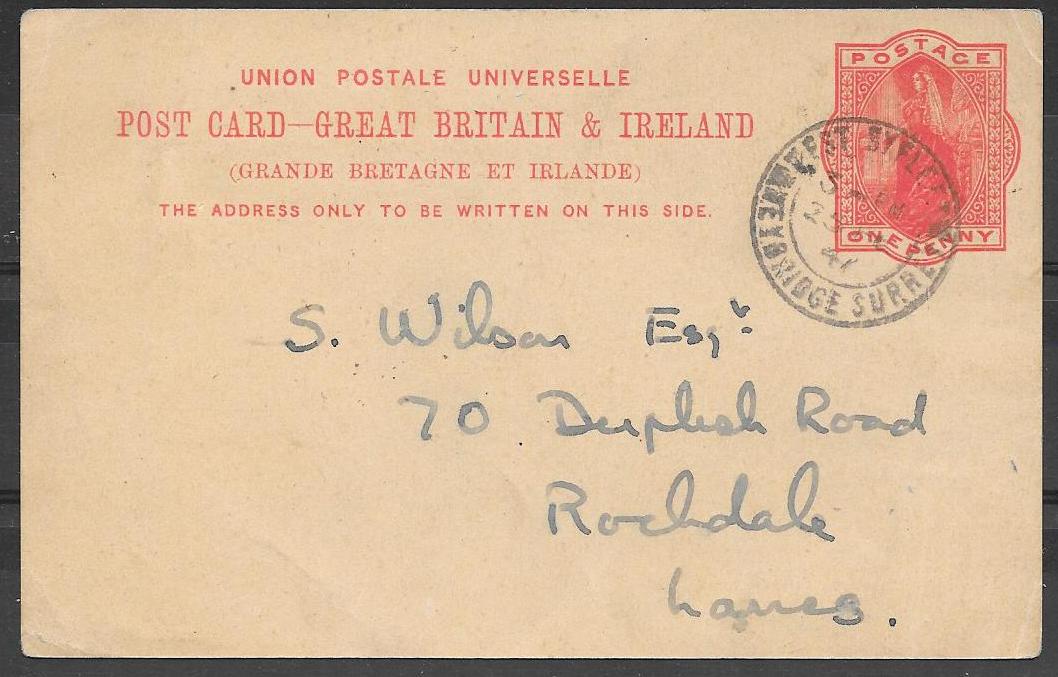 UNION POSTALE UNIVERSELLE
POST CARD—GREAT BRITAIN & IRELAND
(GRANDE BRETAGNE ET IRLANDE)
THE ADDRESS ONLY TO BE WRITTEN ON THIS SIDE.
POSTAGE
ONE PENNY
WEYBRIDGE SURREY
S. Wilson Esqr.
70 Deeplish Road
Rochdale
Lancs.